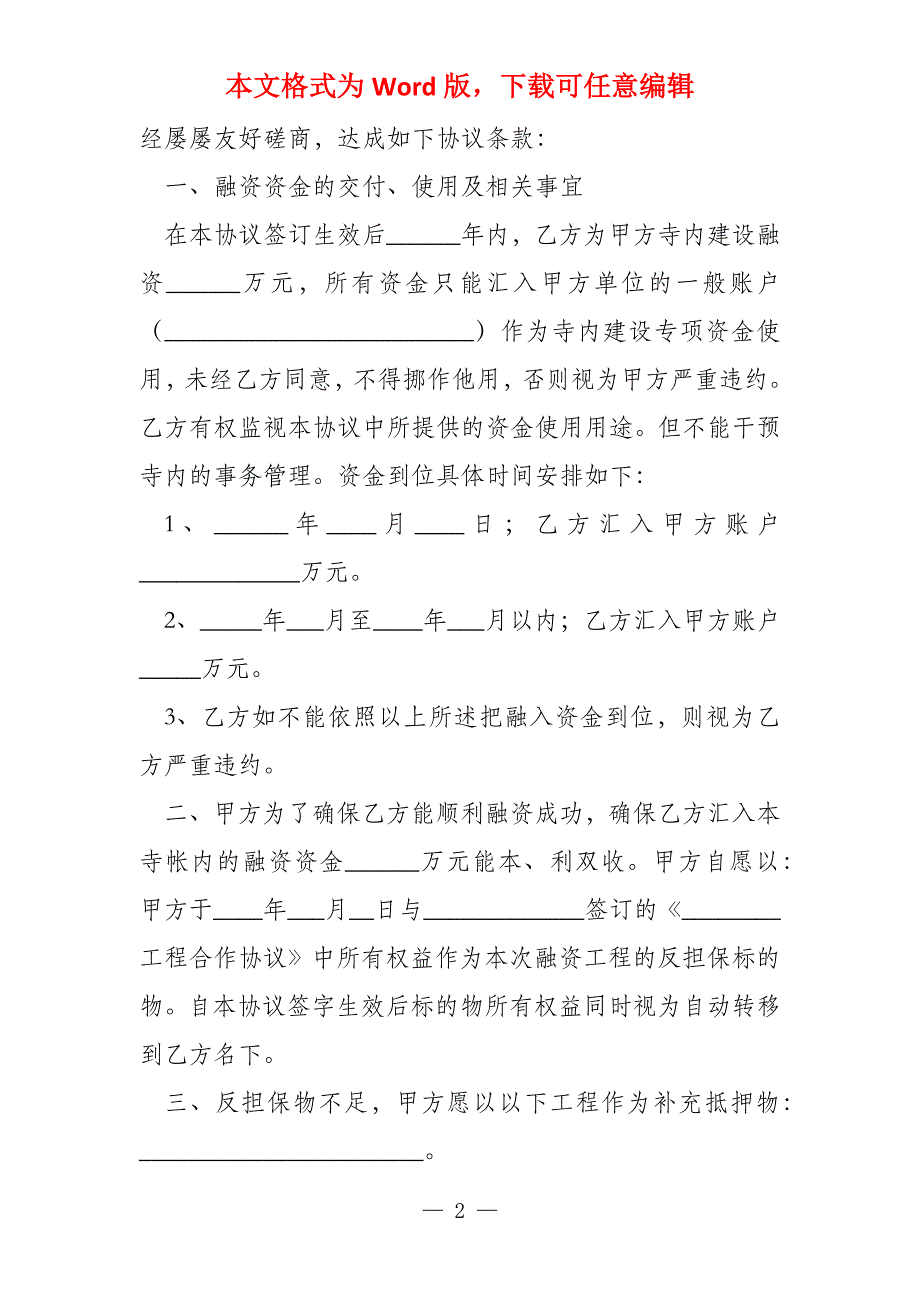 本文格式为 Word 版，下载可任意编辑
经屡屡友好磋商，达成如下协议条款：
一、融资资金的交付、使用及相关事宜
在本协议签订生效后______年内，乙方为甲方寺内建设融
资______万元，所有资金只能汇入甲方单位的一般账户
（_________________________）作为寺内建设专项资金使
用，未经乙方同意，不得挪作他用，否则视为甲方严重违约。
乙方有权监视本协议中所提供的资金使用用途。但不能干预
寺内的事务管理。资金到位具体时间安排如下：
1、______年____月____日；乙方汇入甲方账户
_____________万元。
2、_____年___月至____年___月以内；乙方汇入甲方账户
_____万元。
3、乙方如不能依照以上所述把融入资金到位，则视为乙
方严重违约。
二、甲方为了确保乙方能顺利融资成功，确保乙方汇入本
寺帐内的融资资金______万元能本、利双收。甲方自愿以：
甲方于____年___月__日与_____________签订的《________
工程合作协议》中所有权益作为本次融资工程的反担保标的
物。自本协议签字生效后标的物所有权益同时视为自动转移
到乙方名下。
三、反担保物不足，甲方愿以以下工程作为补充抵押物：
_______________________。
— 2 —